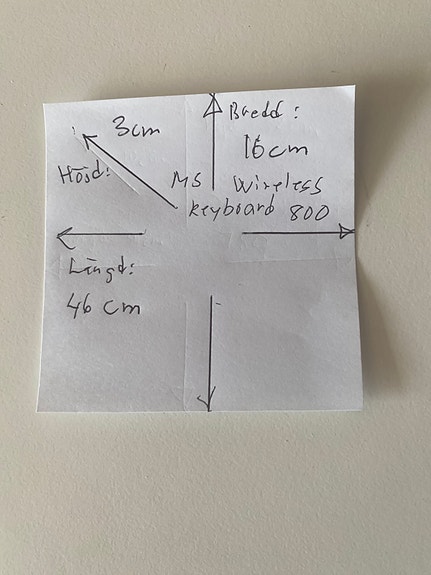 3cm
Höjd:
Bredd:
16cm
MS Wireless
keyboard 800
Längd:
46 cm